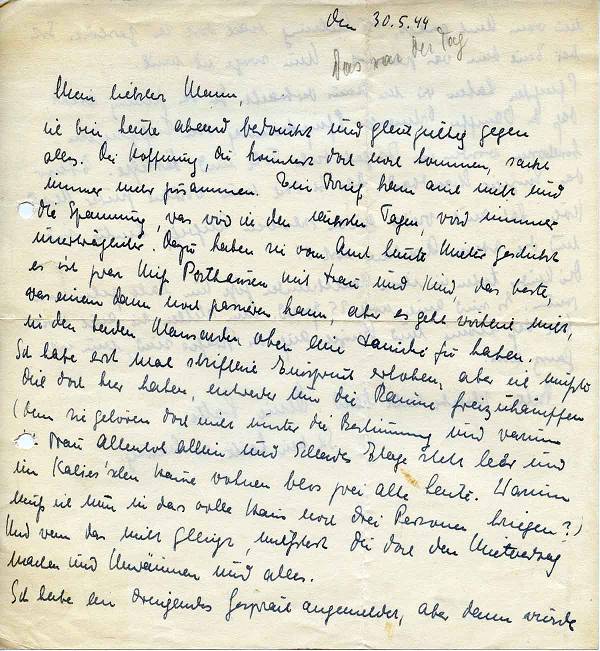 den 30.5.44
Das war der Tag
Mein liebster Mann,
ich bin heute abend bedrückt und gleichgültig gegen
alles. Die Hoffnung, du könntest doch noch kommen, sackt
immer mehr zusammen. Ein Brief kam auch nicht und
die Spannung, was wird in den neusten Tagen, wird immer
unerträglicher. Dazu haben sie vom Amt heute Mieter geschickt
es ist zwar Uffz Posthausen mit Frau und Kind das beste,
was einem dann noch passieren kann, aber es geht vorher nicht,
in den beiden Mansarden oben eine Familie zu haben.
Ich habe erst mal schriftlich Einspruch erhoben, aber ich müsste
dich doch hier haben, entweder um die Räume freizukämpfen
(denn sie gehören doch nicht unter die Bestimmung und warum
ist Frau allein und Etage steht leer und
im Hause wohnen blos zwei alte Leute. Warum
muss ich nun in das volle Haus noch drei Personen kriegen?)
Und wenn das nicht gelingt, müsstest du doch den Mietvertrag
machen und Umräumen und alles.
Ich habe ein dringendes Gespräch angemeldet, aber dann würde